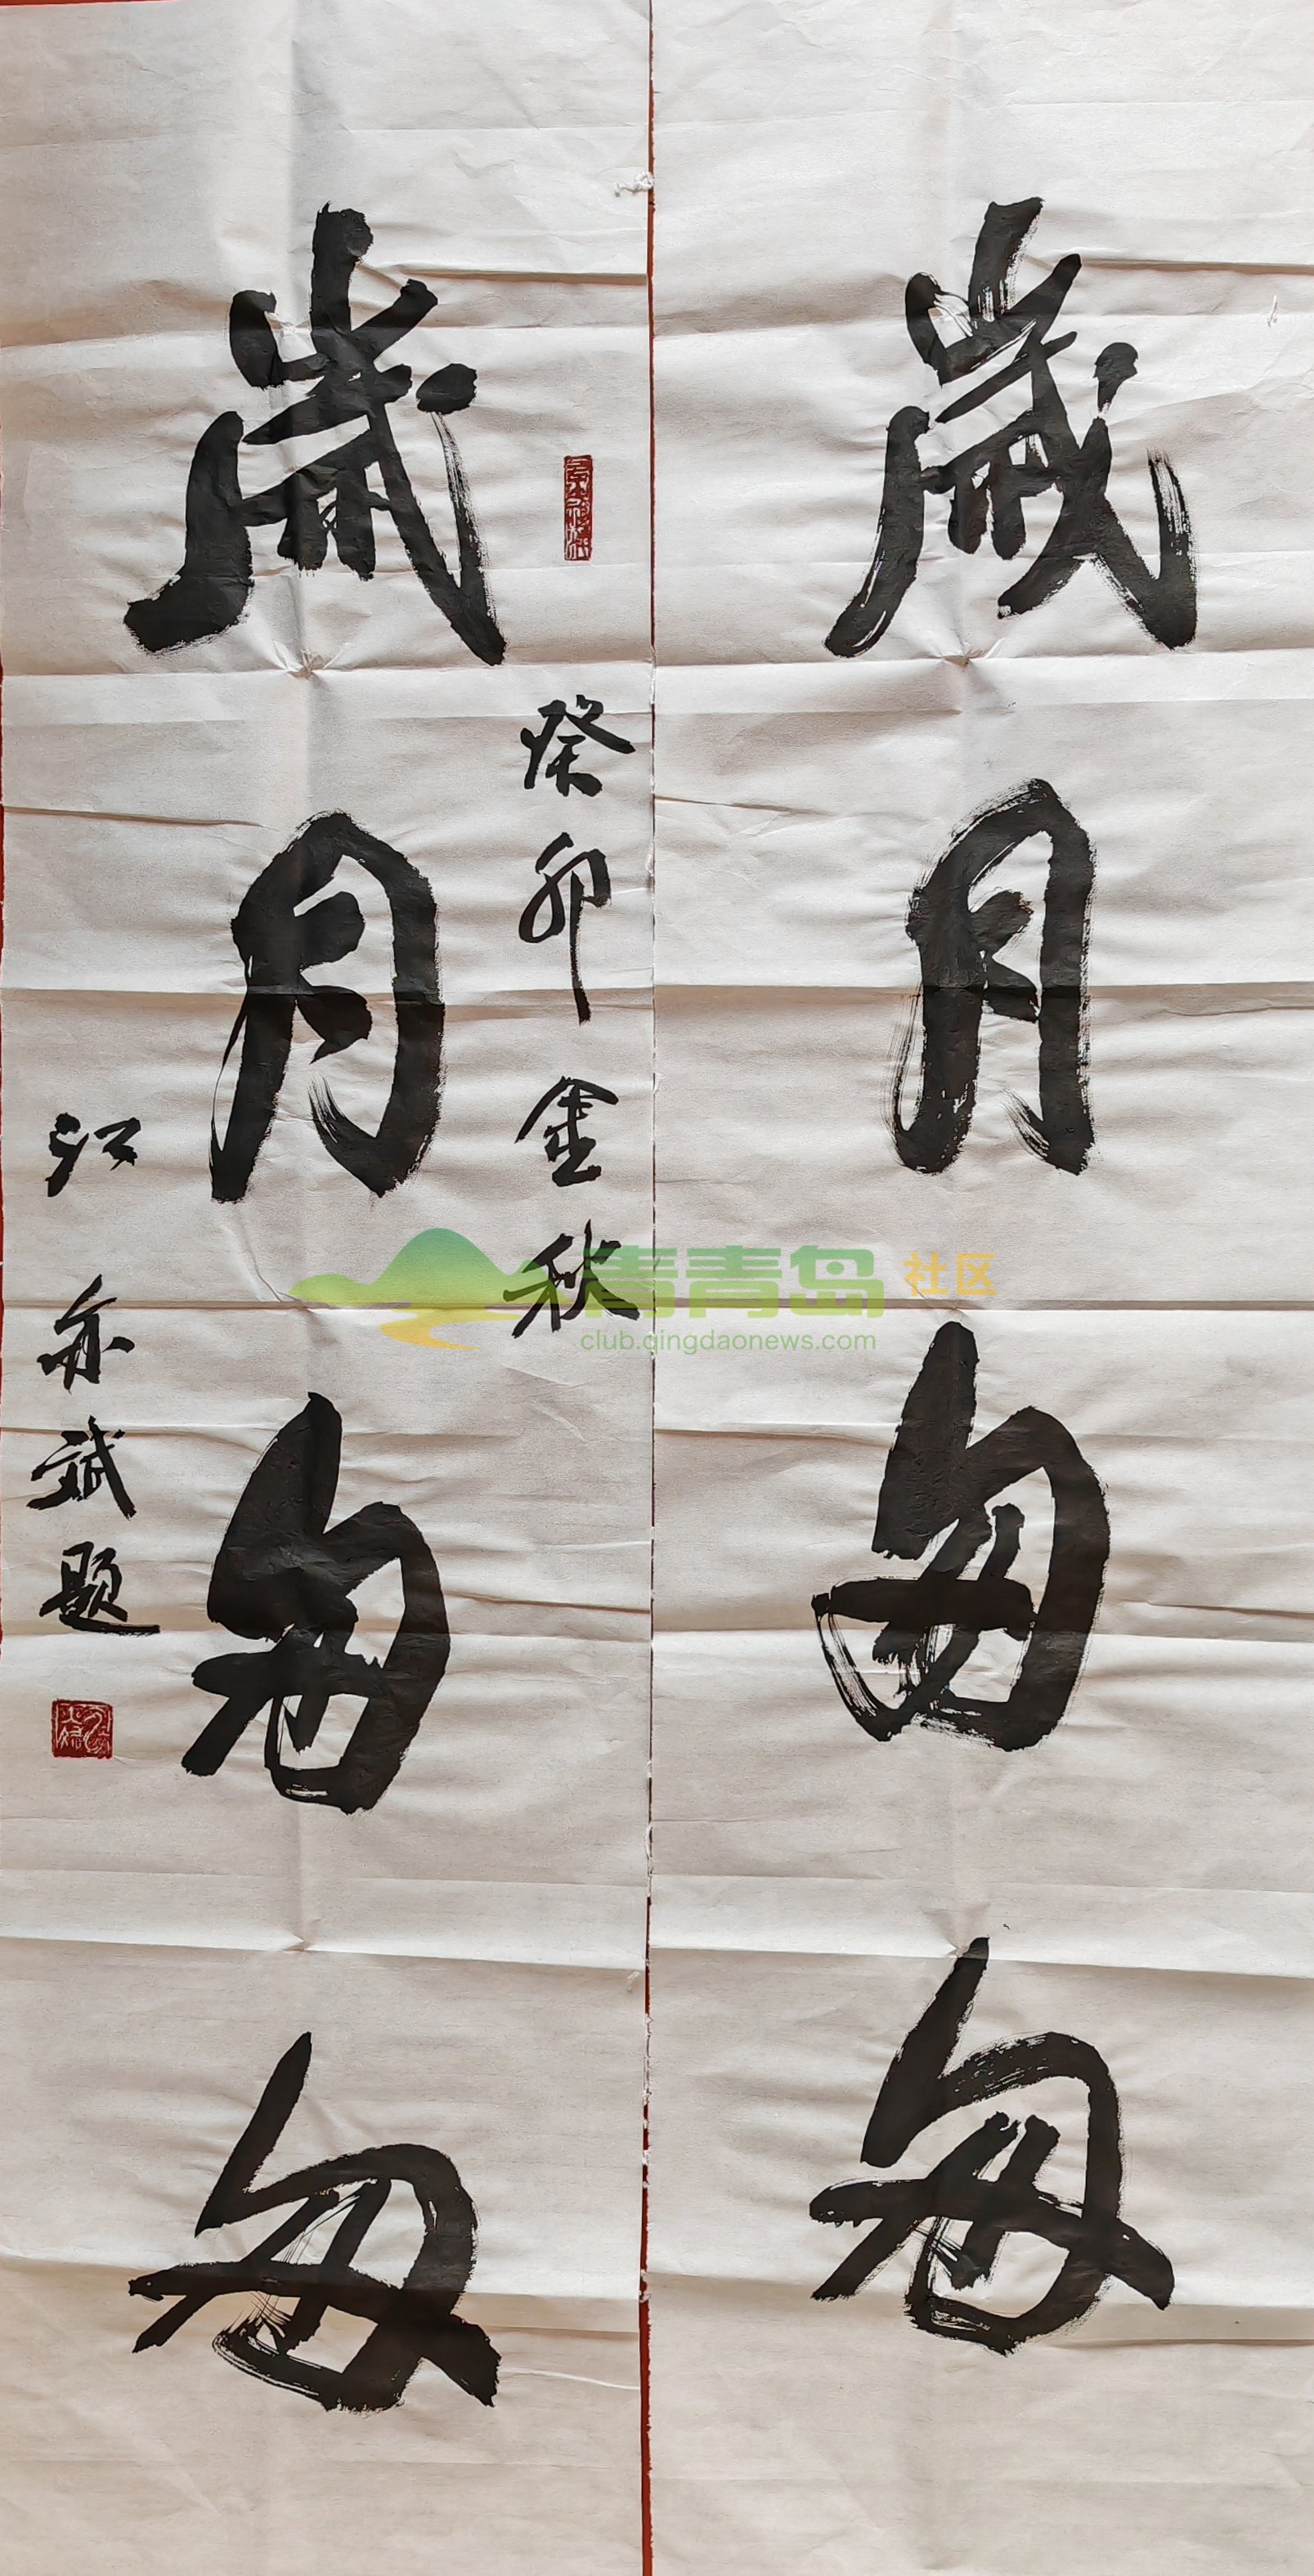 歲月匆匆
癸卯金秋
歲月匆匆
江亦斌題
青青岛 社区
club.qingdaonews.com